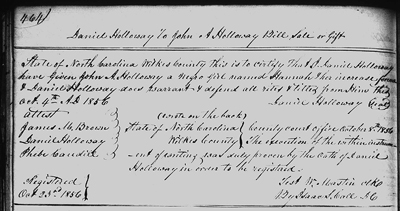 464
Daniel Holloway To John A Holloway Bill Sale or Gift
State of North Carolina Wilkes County this is to certify that I Daniel Holloway
have Given John A Holloway a Negro girl named Hannah & her increase
I Daniel Holloway does warrant & defend all rites & titles from him this
Oct. 4th A.D 1856 Daniel Holloway (Seal)
Attest (wrote on the back)
James M. Brown State of North Carolina County court office October 1856
Daniel Holloway Wilkes County The execution of the within instrum
Phebe Caudill ent of writing was duly proven by the oath of Daniel
Holloway in order to be registered.
Registered Test W. Mastin clk
Oct 23rd 1856 By Isaac S. Call DC